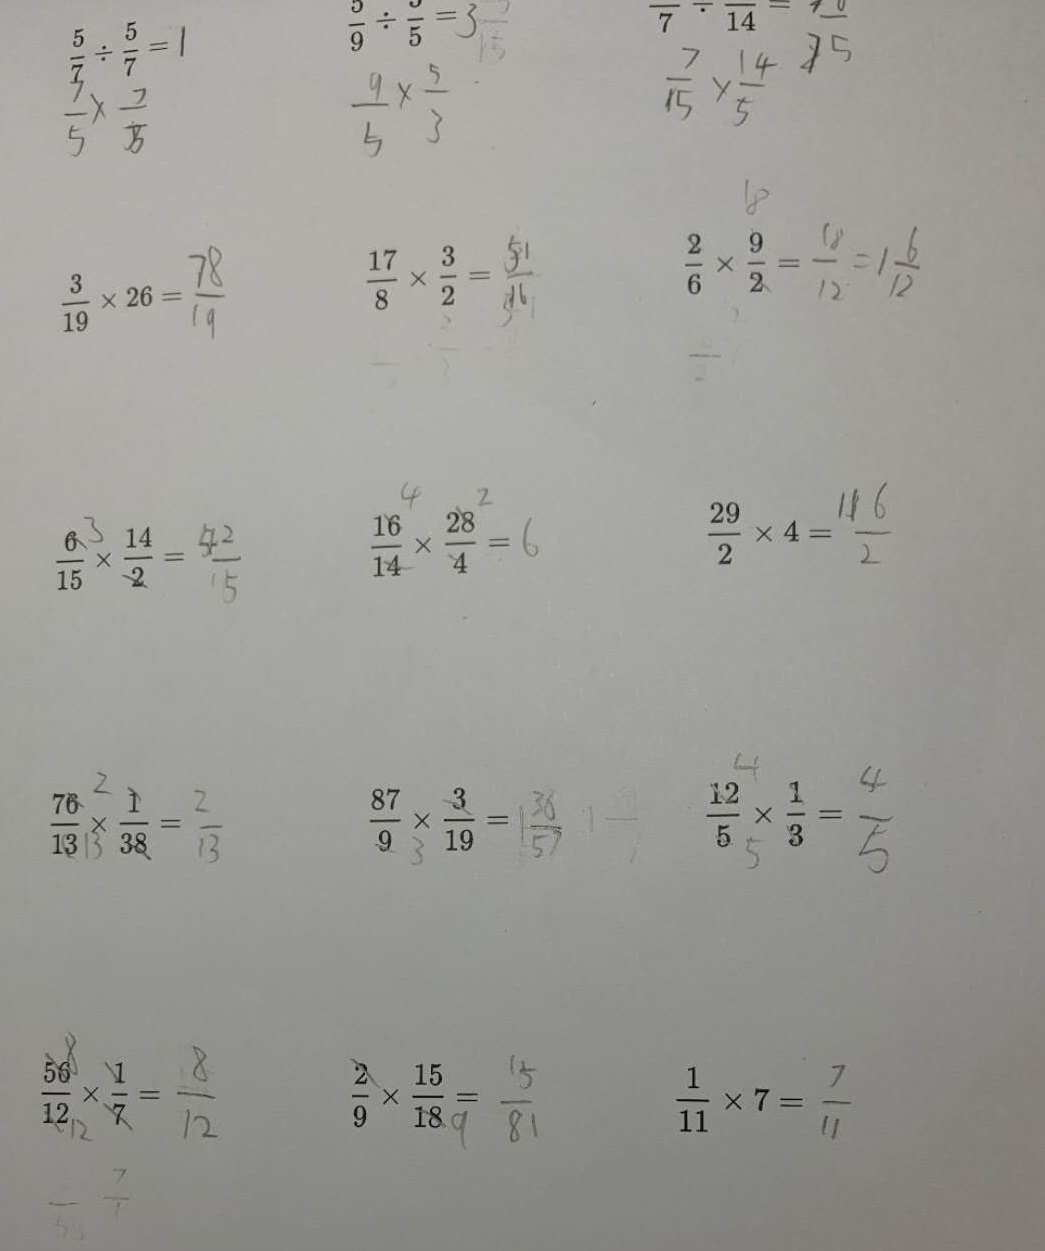 5/7 ÷ 5/7 = 1
7/5 × 7/5
5/9 ÷ /5 = 3
9/5 × 5/3
/7 ÷ /14 =
7/15 × 14/5
3/19 × 26 = 78/19
17/8 × 3/2 = 51/16
18
2/6 × 9/2 = 18/12 = 1 6/12
6/15 3 × 14/2 = 42/15
4 2
16/14 × 28/4 = 6
29/2 × 4 = 116/2
2
76/13 13 × 1/38 = 2/13
87/9 3 × 3/19 = 1 /57
4
12/5 5 × 1/3 = 4/5
8
56/12 12 × 1/7 = 8/12
2/9 × 15/18 9 = 15/81
1/11 × 7 = 7/11